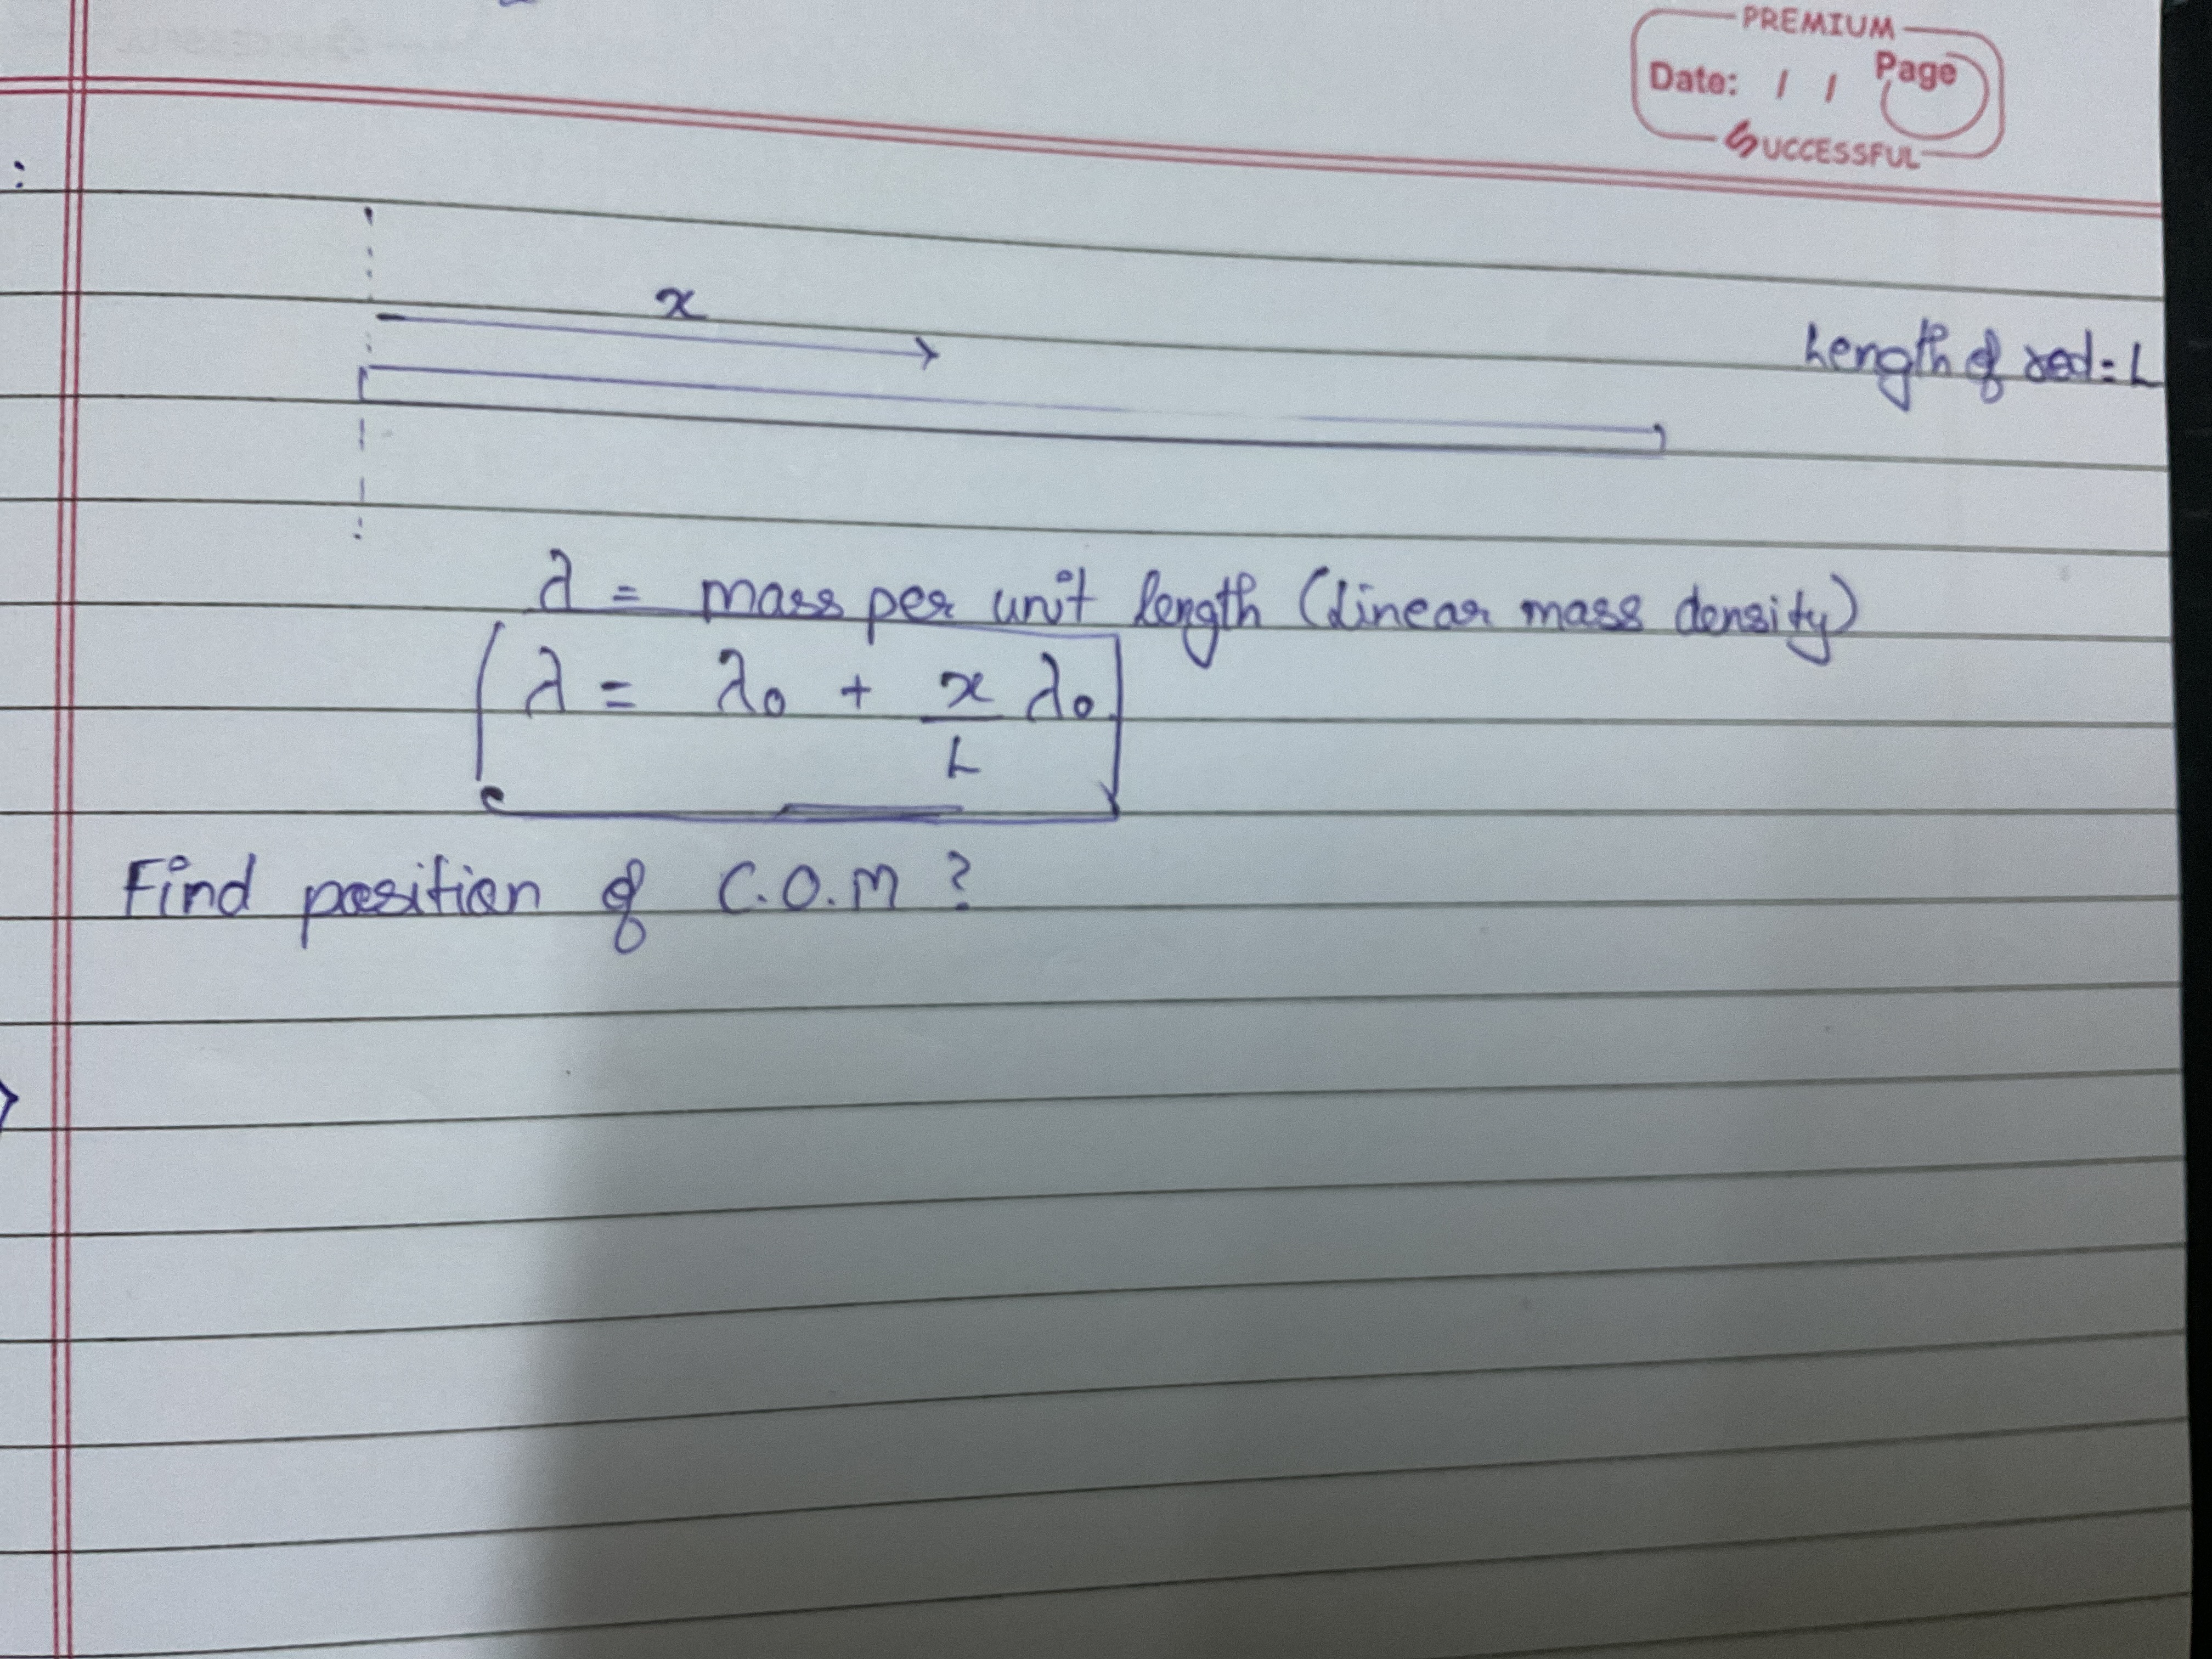 PREMIUM
Date: / / Page
SUCCESSFUL
:
x
Length of rod = L
λ = mass per unit length (Linear mass density)
λ = λ₀ + x/L λ₀
Find position of C.O.M ?